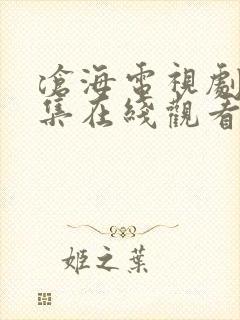 滄海電視劇
集在綫觀看
姬之葉